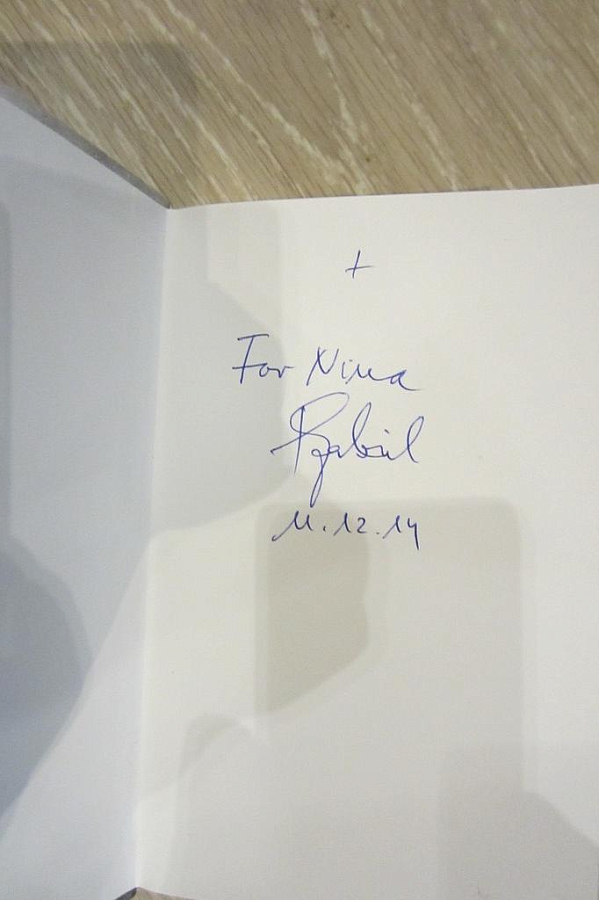 +
For Nina
11.12.14